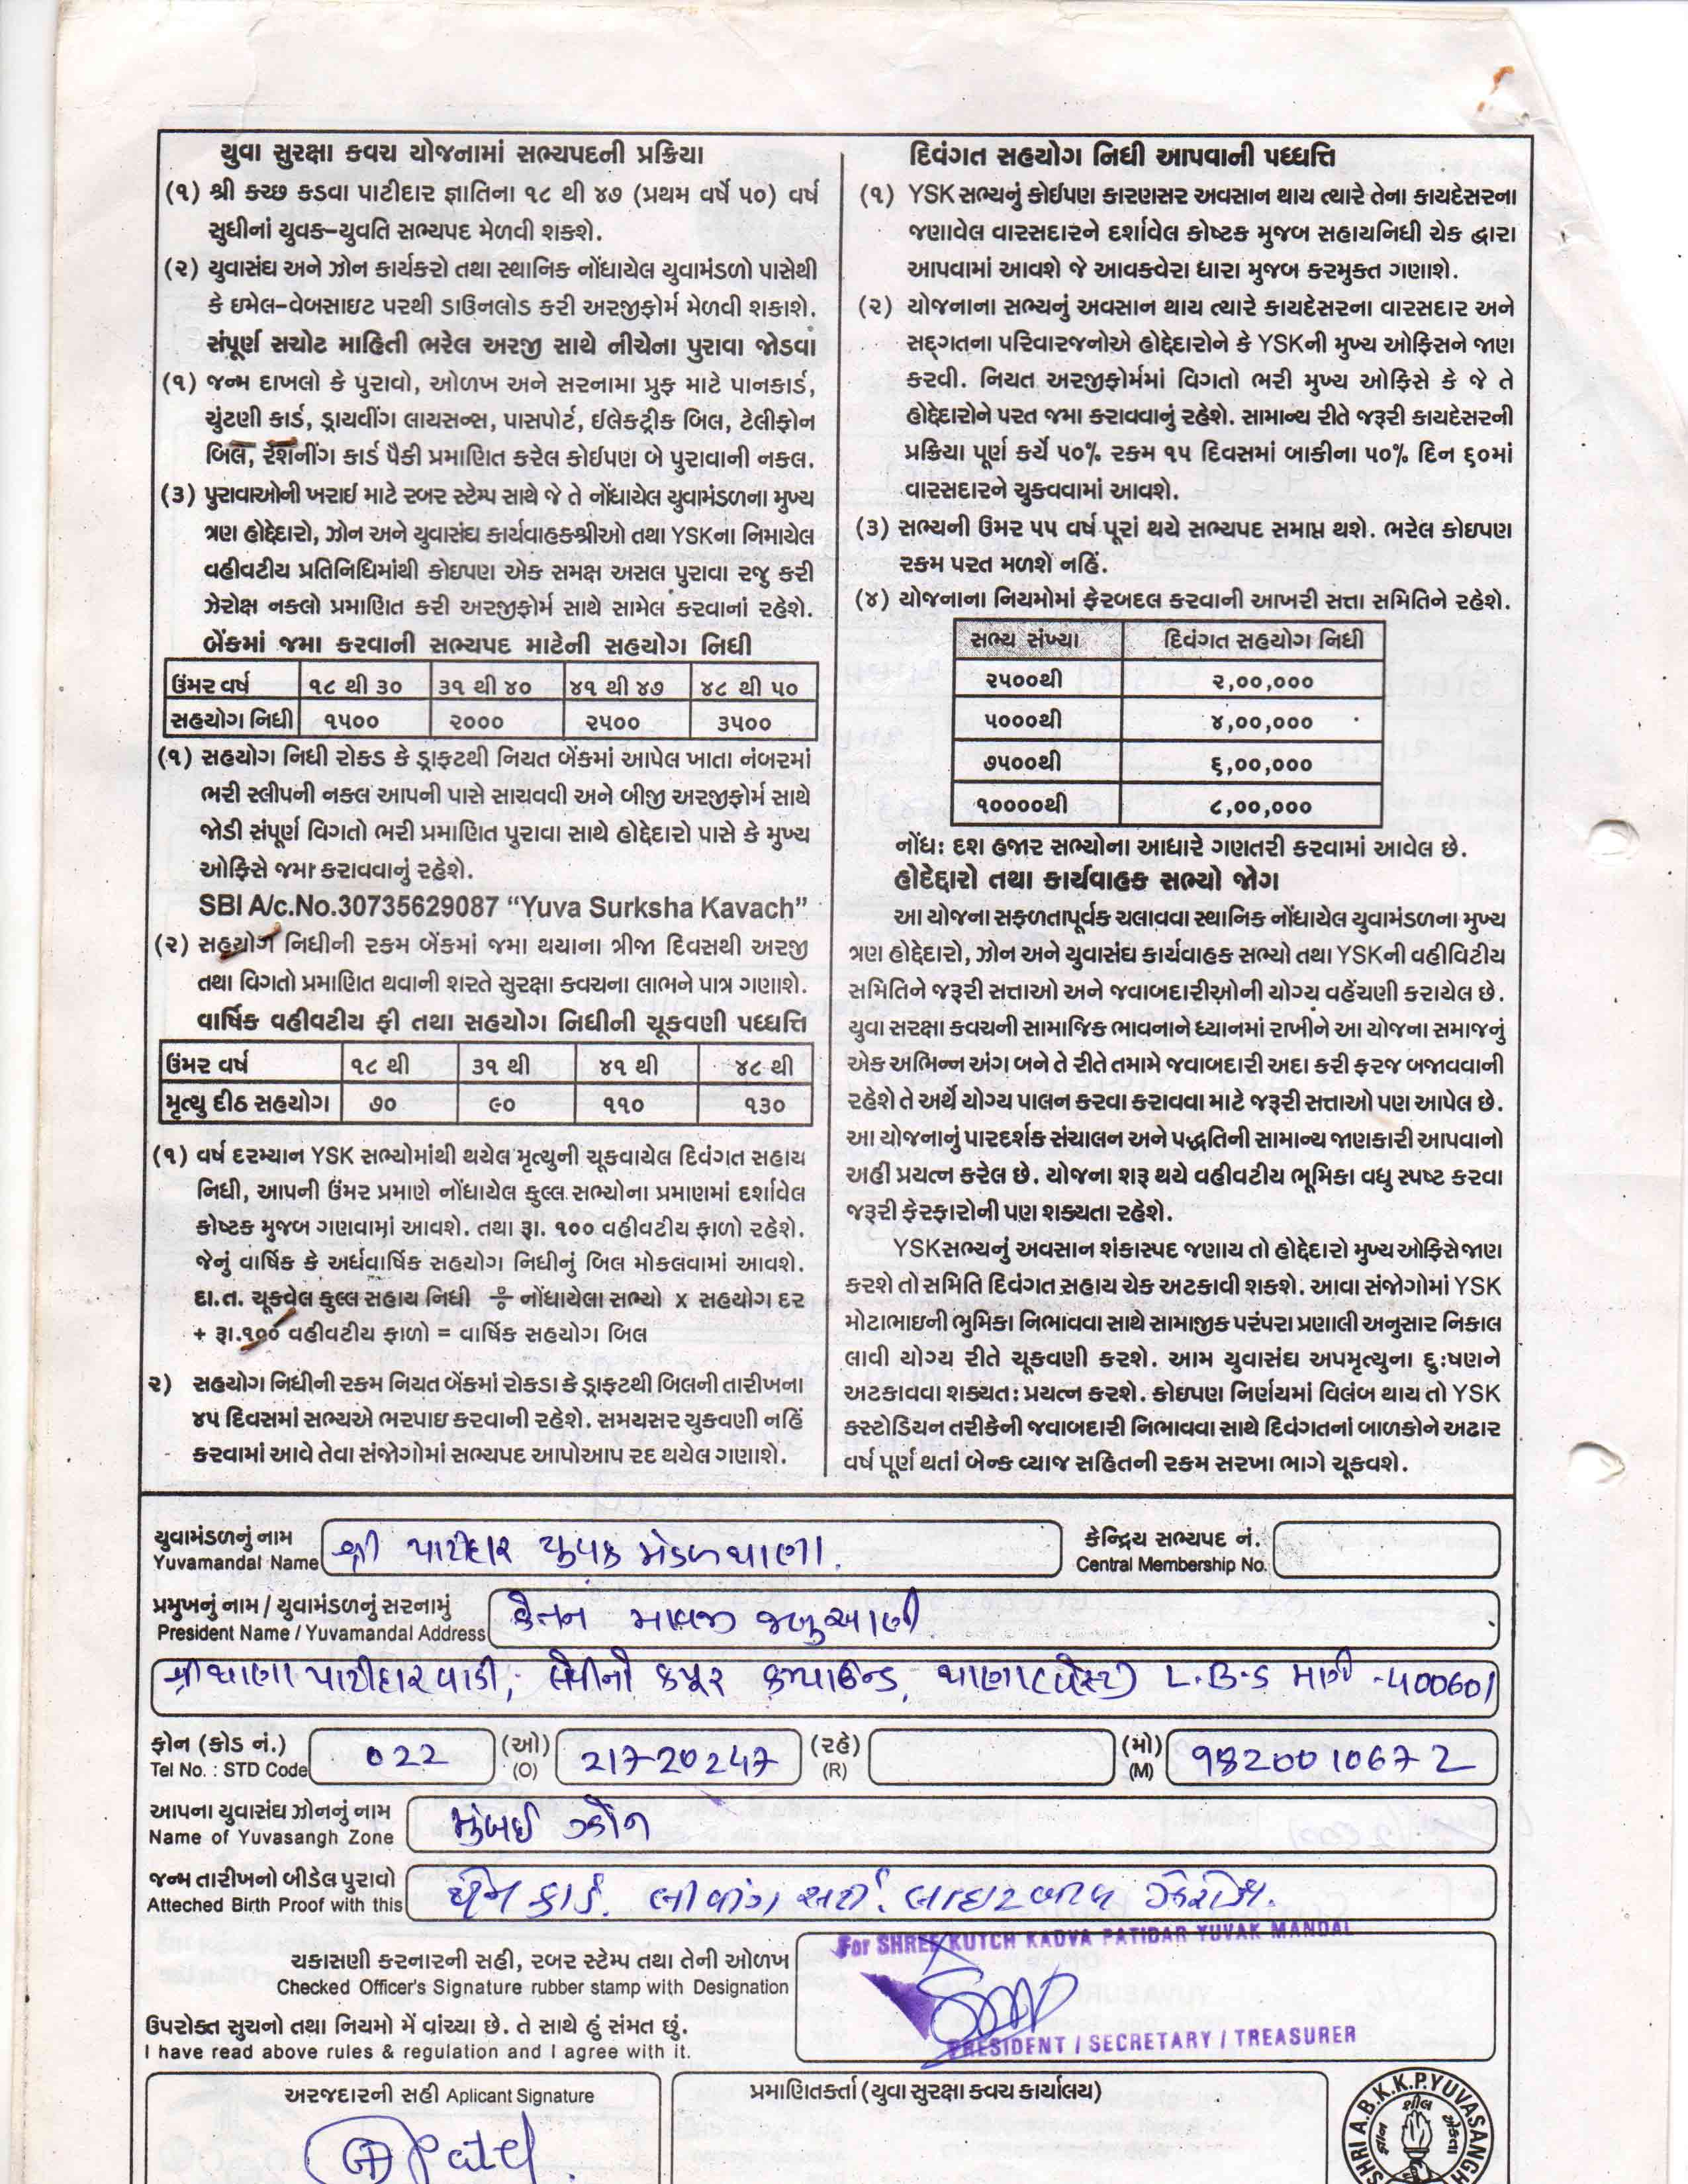 યુવા સુરક્ષા કવચ યોજનામાં સભ્યપદની પ્રક્રિયા
(૧) શ્રી કચ્છ કડવા પાટીદાર જ્ઞાતિના ૧૮ થી ૪૭ (પ્રથમ વર્ષે ૫૦) વર્ષ
સુધીનાં યુવક-યુવતિ સભ્યપદ મેળવી શકશે.
(૨) યુવાસંઘ અને ઝોન કાર્યકરો તથા સ્થાનિક નોંધાયેલ યુવામંડળો પાસેથી
કે ઇમેલ-વેબસાઇટ પરથી ડાઉનલોડ કરી અરજીફોર્મ મેળવી શકાશે.
સંપૂર્ણ સચોટ માહિતી ભરેલ અરજી સાથે નીચેના પુરાવા જોડવાં
(૧) જન્મ દાખલો કે પુરાવો, ઓળખ અને સરનામા પ્રુફ માટે પાનકાર્ડ,
ચુંટણી કાર્ડ, ડ્રાયવીંગ લાયસન્સ, પાસપોર્ટ, ઈલેકટ્રીક બિલ, ટેલીફોન
બિલ, રેશનીંગ કાર્ડ પૈકી પ્રમાણિત કરેલ કોઈપણ બે પુરાવાની નકલ.
(૩) પુરાવાઓની ખરાઇ માટે રબર સ્ટેમ્પ સાથે જે તે નોંધાયેલ યુવામંડળના મુખ્ય
ત્રણ હોદ્દેદારો, ઝોન અને યુવાસંઘ કાર્યવાહકશ્રીઓ તથા YSKના નિમાયેલ
વહીવટીય પ્રતિનિધિમાંથી કોઇપણ એક સમક્ષ અસલ પુરાવા રજુ કરી
ઝેરોક્ષ નકલો પ્રમાણિત કરી અરજીફોર્મ સાથે સામેલ કરવાનાં રહેશે.
બેંકમાં જમા કરવાની સભ્યપદ માટેની સહયોગ નિધી
ઉંમર વર્ષ ૧૮ થી ૩૦ ૩૧ થી ૪૦ ૪૧ થી ૪૭ ૪૮ થી ૫૦
સહયોગ નિધી ૧૫૦૦ ૨૦૦૦ ૨૫૦૦ ૩૫૦૦
(૧) સહયોગ નિધી રોકડ કે ડ્રાફટથી નિયત બેંકમાં આપેલ ખાતા નંબરમાં
ભરી સ્લીપની નકલ આપની પાસે સાચવવી અને બીજી અરજીફોર્મ સાથે
જોડી સંપૂર્ણ વિગતો ભરી પ્રમાણિત પુરાવા સાથે હોદ્દેદારો પાસે કે મુખ્ય
ઓફિસે જમા કરાવવાનું રહેશે.
SBI A/c.No.30735629087 “Yuva Surksha Kavach”
(૨) સહયોગ નિધીની રકમ બેંકમાં જમા થયાના ત્રીજા દિવસથી અરજી
તથા વિગતો પ્રમાણિત થવાની શરતે સુરક્ષા કવચના લાભને પાત્ર ગણાશે.
વાર્ષિક વહીવટીય ફી તથા સહયોગ નિધીની ચૂકવણી પધ્ધતિ
ઉંમર વર્ષ ૧૮ થી ૩૧ થી ૪૧ થી ૪૮ થી
મૃત્યુ દીઠ સહયોગ ૭૦ ૯૦ ૧૧૦ ૧૩૦
(૧) વર્ષ દરમ્યાન YSK સભ્યોમાંથી થયેલ મૃત્યુની ચૂકવાયેલ દિવંગત સહાય
નિધી, આપની ઉંમર પ્રમાણે નોંધાયેલ કુલ્લ સભ્યોના પ્રમાણમાં દર્શાવેલ
કોષ્ટક મુજબ ગણવામાં આવશે. તથા રૂા. ૧૦૦ વહીવટીય ફાળો રહેશે.
જેનું વાર્ષિક કે અર્ધવાર્ષિક સહયોગ નિધીનું બિલ મોકલવામાં આવશે.
દા.ત. ચૂકવેલ કુલ્લ સહાય નિધી ÷ નોંધાયેલા સભ્યો x સહયોગ દર
+ રૂા.૧૦૦ વહીવટીય ફાળો = વાર્ષિક સહયોગ બિલ
૨) સહયોગ નિધીની રકમ નિયત બેંકમાં રોકડા કે ડ્રાફટથી બિલની તારીખના
૪૫ દિવસમાં સભ્યએ ભરપાઇ કરવાની રહેશે. સમયસર ચુકવણી નહિં
કરવામાં આવે તેવા સંજોગોમાં સભ્યપદ આપોઆપ રદ થયેલ ગણાશે.
દિવંગત સહયોગ નિધી આપવાની પધ્ધતિ
(૧) YSK સભ્યનું કોઈપણ કારણસર અવસાન થાય ત્યારે તેના કાયદેસરના
જણાવેલ વારસદારને દર્શાવેલ કોષ્ટક મુજબ સહાયનિધી ચેક દ્વારા
આપવામાં આવશે જે આવકવેરા ધારા મુજબ કરમુક્ત ગણાશે.
(૨) યોજનાના સભ્યનું અવસાન થાય ત્યારે કાયદેસરના વારસદાર અને
સદ્ગતના પરિવારજનોએ હોદ્દેદારોને કે YSKની મુખ્ય ઓફિસને જાણ
કરવી. નિયત અરજીફોર્મમાં વિગતો ભરી મુખ્ય ઓફિસે કે જે તે
હોદ્દેદારોને પરત જમા કરાવવાનું રહેશે. સામાન્ય રીતે જરૂરી કાયદેસરની
પ્રક્રિયા પૂર્ણ કર્યે ૫૦% રકમ ૧૫ દિવસમાં બાકીના ૫૦% દિન ૬૦માં
વારસદારને ચુકવવામાં આવશે.
(૩) સભ્યની ઉંમર ૫૫ વર્ષ પૂરાં થયે સભ્યપદ સમાપ્ત થશે. ભરેલ કોઇપણ
રકમ પરત મળશે નહિં.
(૪) યોજનાના નિયમોમાં ફેરબદલ કરવાની આખરી સત્તા સમિતિને રહેશે.
સભ્ય સંખ્યા દિવંગત સહયોગ નિધી
૨૫૦૦થી ૨,૦૦,૦૦૦
૫૦૦૦થી ૪,૦૦,૦૦૦
૭૫૦૦થી ૬,૦૦,૦૦૦
૧૦૦૦૦થી ૮,૦૦,૦૦૦
નોંધ: દશ હજાર સભ્યોના આધારે ગણતરી કરવામાં આવેલ છે.
હોદેદ્દારો તથા કાર્યવાહક સભ્યો જોગ
આ યોજના સફળતાપૂર્વક ચલાવવા સ્થાનિક નોંધાયેલ યુવામંડળના મુખ્ય
ત્રણ હોદ્દેદારો, ઝોન અને યુવાસંઘ કાર્યવાહક સભ્યો તથા YSKની વહીવિટીય
સમિતિને જરૂરી સત્તાઓ અને જવાબદારીઓની યોગ્ય વહેંચણી કરાયેલ છે.
યુવા સરક્ષા કવચની સામાજિક ભાવનાને ધ્યાનમાં રાખીને આ યોજના સમાજનું
એક અભિન્ન અંગ બને તે રીતે તમામે જવાબદારી અદા કરી ફરજ બજાવવાની
રહેશે તે અર્થે યોગ્ય પાલન કરવા કરાવવા માટે જરૂરી સત્તાઓ પણ આપેલ છે.
આ યોજનાનું પારદર્શક સંચાલન અને પદ્ધતિની સામાન્ય જાણકારી આપવાનો
અહીં પ્રયત્ન કરેલ છે. યોજના શરૂ થયે વહીવટીય ભૂમિકા વધુ સ્પષ્ટ કરવા
જરૂરી ફેરફારોની પણ શક્યતા રહેશે.
YSKસભ્યનું અવસાન શંકાસ્પદ જણાય તો હોદ્દેદારો મુખ્ય ઓફિસે જાણ
કરશે તો સમિતિ દિવંગત સહાય ચેક અટકાવી શકશે. આવા સંજોગોમાં YSK
મોટાભાઇની ભુમિકા નિભાવવા સાથે સામાજીક પરંપરા પ્રણાલી અનુસાર નિકાલ
લાવી યોગ્ય રીતે ચૂકવણી કરશે. આમ યુવાસંઘ અપમૃત્યુના દુઃષણને
અટકાવવા શક્યતઃ પ્રયત્ન કરશે. કોઇપણ નિર્ણયમાં વિલંબ થાય તો YSK
કસ્ટોડિયન તરીકેની જવાબદારી નિભાવવા સાથે દિવંગતનાં બાળકોને અઢાર
વર્ષ પૂર્ણ થતાં બેન્ક વ્યાજ સહિતની રકમ સરખા ભાગે ચૂકવશે.
યુવામંડળનું નામ શ્રી પાટીદાર યુવક મંડળ થાણા. કેન્દ્રિય સભ્યપદ નં.
Yuvamandal Name Central Membership No.
પ્રમુખનું નામ / યુવામંડળનું સરનામું કેતન માવજી જબુઆણી
President Name / Yuvamandal Address
શ્રી થાણા પાટીદાર વાડી, કપૂર કમ્પાઉન્ડ, થાણા(વેસ્ટ) L.B.S માર્ગ -400601
ફોન (કોડ નં.) 022 (ઓ) 217-20247 (રહે) (મો) 9820010672
Tel No. : STD Code (O) (R) (M)
આપના યુવાસંઘ ઝોનનું નામ મુંબઈ ઝોન
Name of Yuvasangh Zone
જન્મ તારીખનો બીડેલ પુરાવો પેન કાર્ડ. લીવીંગ સર્ટી. લાઇટબીલ ઝેરોક્ષ.
Atteched Birth Proof with this
For SHREE KUTCH KADVA PATIDAR YUVAK MANDAL
ચકાસણી કરનારની સહી, રબર સ્ટેમ્પ તથા તેની ઓળખ
Checked Officer's Signature rubber stamp with Designation
ઉપરોક્ત સુચનો તથા નિયમો મેં વાંચ્યા છે. તે સાથે હું સંમત છું.
PRESIDENT / SECRETARY / TREASURER
I have read above rules & regulation and I agree with it.
અરજદારની સહી Aplicant Signature પ્રમાણિતકર્તા (યુવા સુરક્ષા કવચ કાર્યાલય)
Patel
SHRI A.B.K.K.P.YUVASANGH